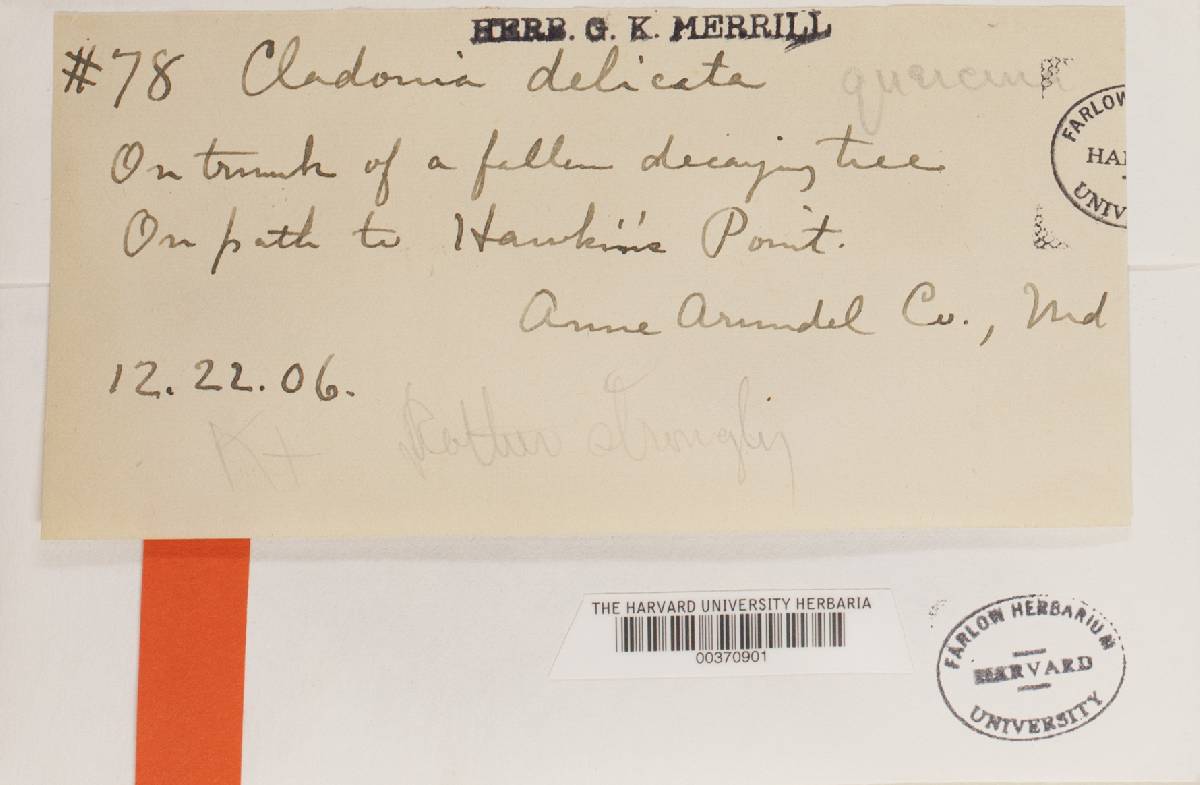 HERB. G. K. MERRILL
#78 Cladonia delicata quercina
On trunk of a fallen decaying tree
On path to Hawkin's Point.
Anne Arundel Co., Md
12.22.06.
K+ Rather strongly
FARLOW
HA
UNIV
THE HARVARD UNIVERSITY HERBARIA
00370901
FARLOW HERBARIUM
HARVARD
UNIVERSITY